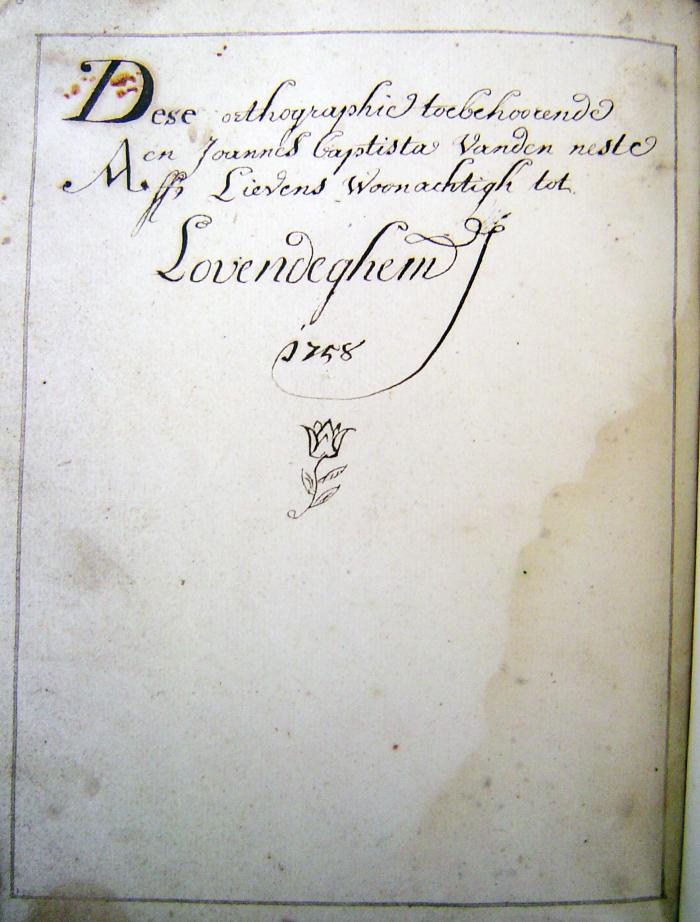 Dese orthographie toebehoorende
Aen Joannes baptista Vanden neste
ffs Lievens Woonachtigh tot
Lovendeghem
1758